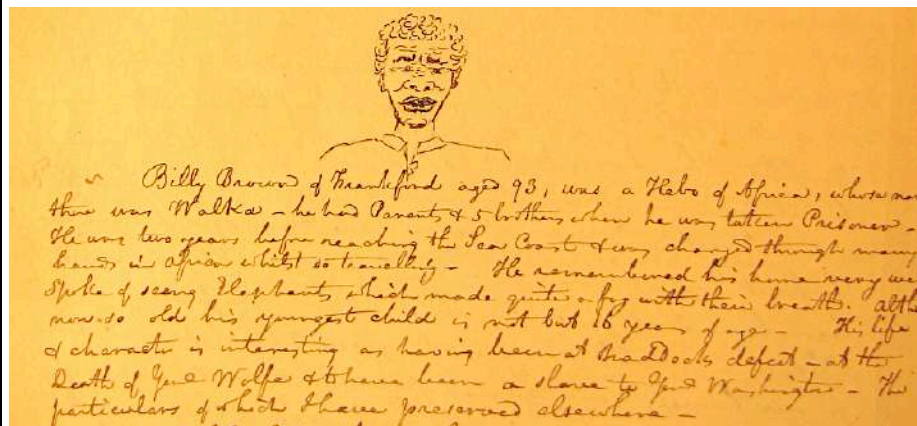 Billy Brown of Frankford aged 93, was a Hebo of Africa, whose na
there was Walka – he had Parents & 5 brothers when he was taken Prisoner –
He was two years before reaching the Sea Coast & was changed through many
hands in Africa whilst so travelling – He remembered his home very we
Spoke of seeing Elephants which made quite a fog with their breath. alth
now so old his youngest child is not but 16 years of age – His life
& character is interesting as having been at Braddocks defeat – at the
Death of Genl Wolfe & to have been a slave to Genl Washington – The
particulars of which I have preserved elsewhere –